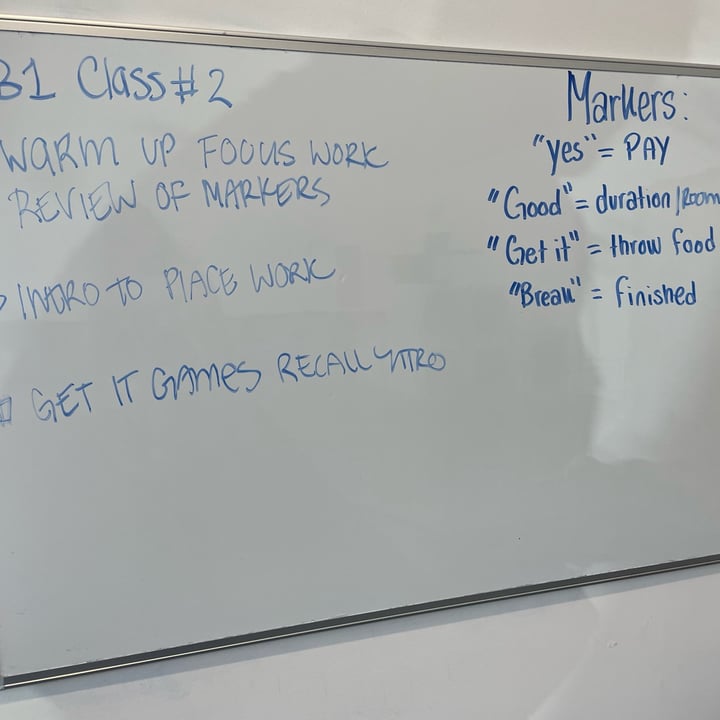 B1 Class #2
WARM UP FOCUS WORK
REVIEW OF MARKERS
INTRO TO PLACE WORK
GET IT GAMES RECALL INTRO
Markers:
"yes" = PAY
"Good" = duration/Room
"Get it" = throw food
"Break" = finished